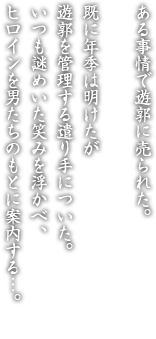 ある事情で遊郭に売られた。
既に年季は明けたが
遊郭を管理する遣り手についた。
いつも謎めいた笑みを浮かべ、
ヒロインを男たちのもとに案内する…。